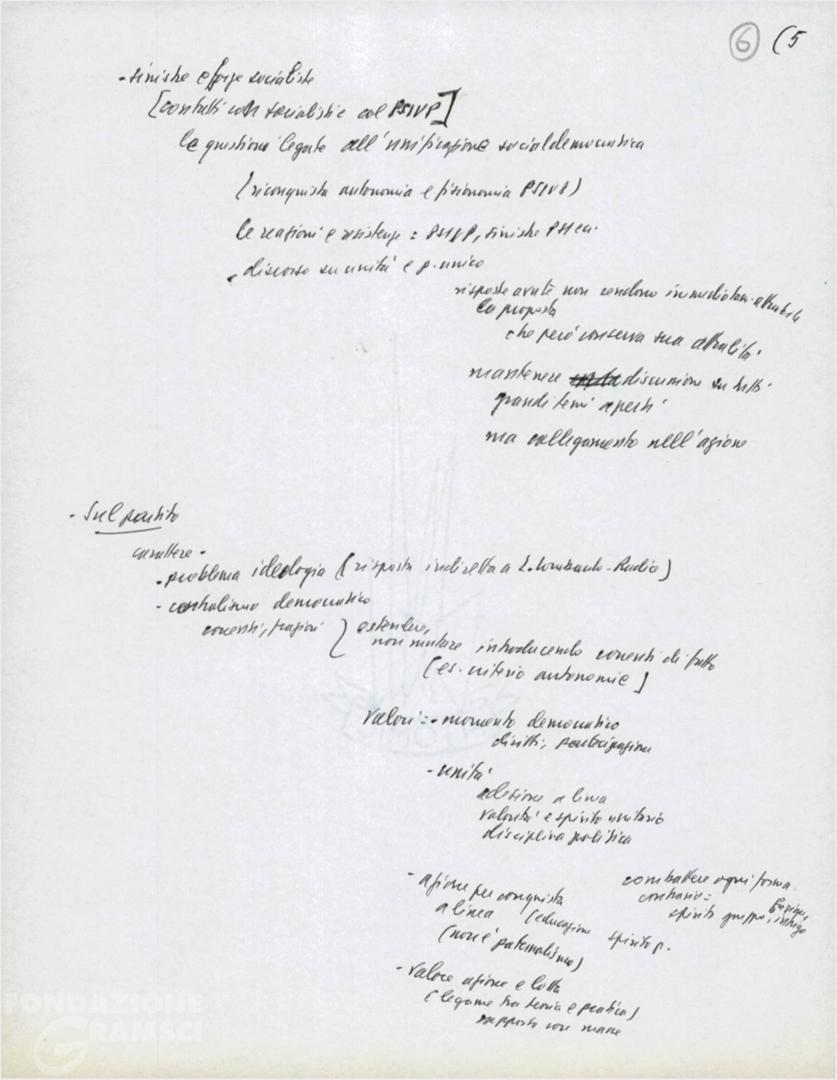 6 (5
- sinistre e forze socialiste
[contatti con socialisti e col PSIUP]
la questione legata all'unificazione socialdemocratica
(riconquista autonomia e fisionomia PSIUP)
le reazioni e resistenze = PSIUP, sinistre PSI ecc.
- discorso su unità e p. unico
risposte avute non rendono immediatam. attuabile
la proposta
che però conserva sua attualità
mantenere discussione su tutti
grandi temi aperti
ma collegamento nell'azione
- Sul partito
carattere -
- problema ideologia (risposta indiretta a L. Lombardo-Radice)
- centralismo democratico
correnti, frazioni } estendere,
non mutare introducendo correnti di fatto
[es. criterio autonomie]
Valori = - momento democratico
diritti, partecipazione
- unità
adesione a linea
volontà e spirito unitario
disciplina politica
- azione per conquista
a linea (educazione spirito p.
(non è paternalismo)
combattere ogni forma
contraria =
spirito gruppo, intrigo
- valore azione e lotta
(legame tra teoria e pratica)
rapporto con masse
FONDAZIONE
GRAMSCI